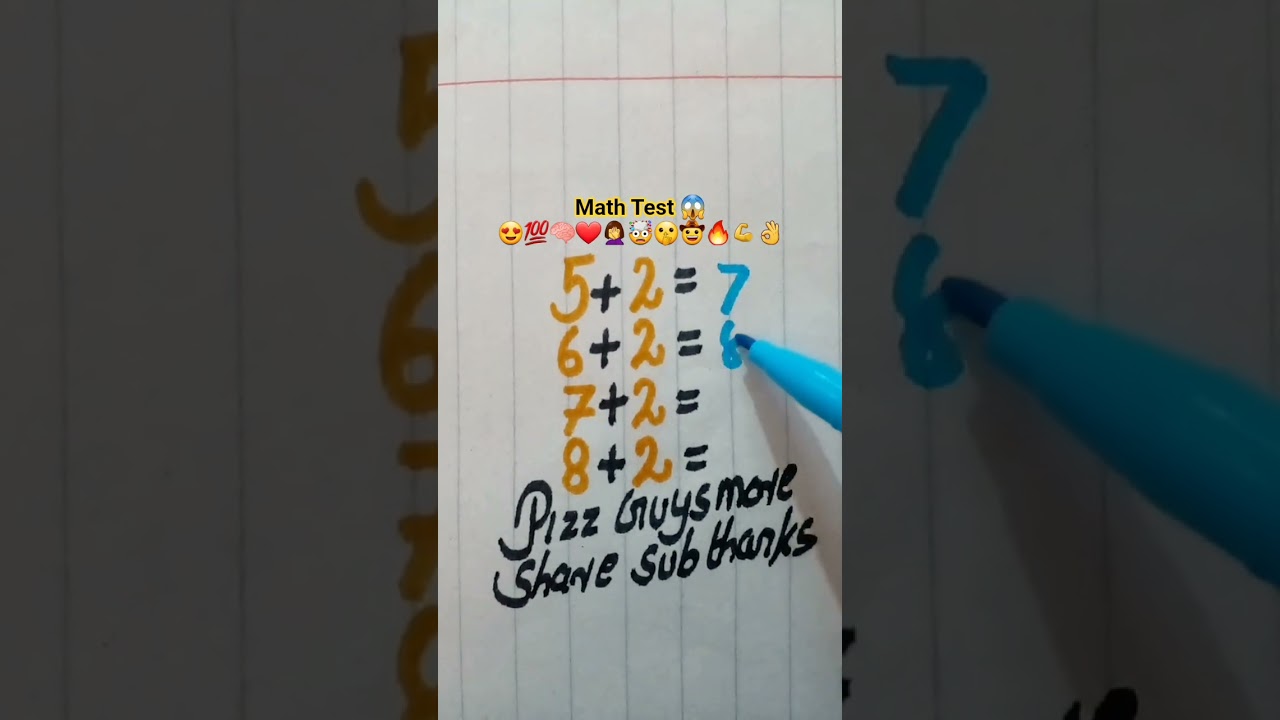 Math Test 😱
😍💯🧠❤️🤦‍♀️🤯🤫🤠🔥💪👌
5+2=7
6+2=8
7+2=
8+2=
Pizz Guys more
share sub thanks